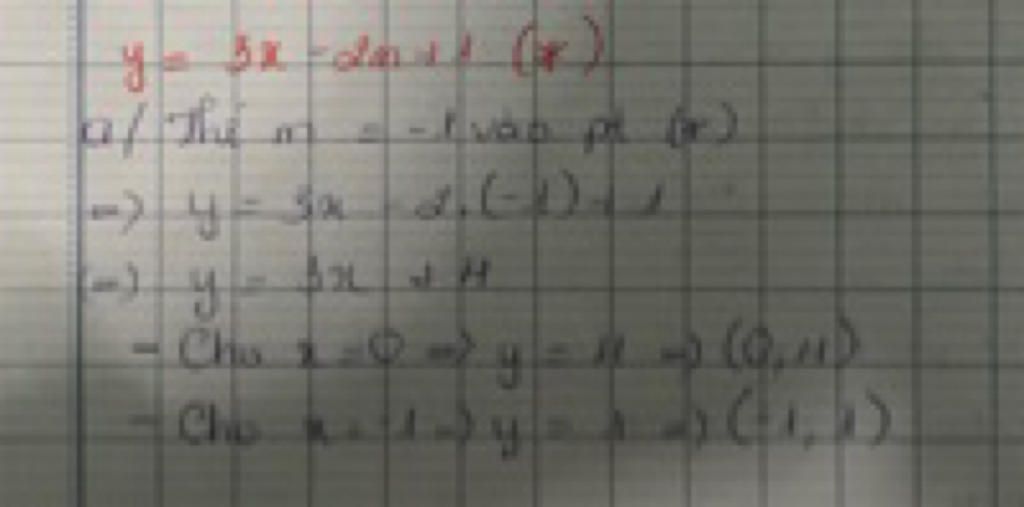 y = 3x - 2m + 1 (*)
a/ Thế m = -1 vào pt (*)
=> y = 3x - 2.(-1) + 1
(=) y = 3x + 4
- Cho x = 0 => y = 4 => (0, 4)
- Cho x = -1 => y = 1 => (-1, 1)